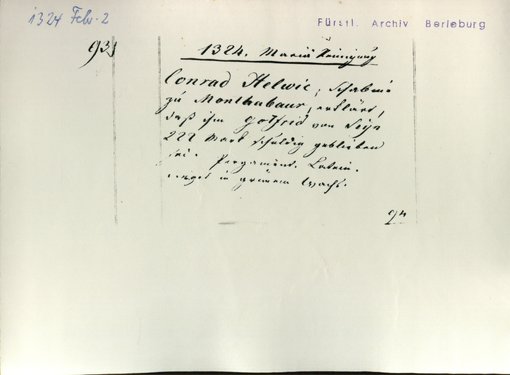 1324 Febr. 2
Fürstl. Archiv Berleburg
93
1324. Mariä Reinigung
Conrad Helwic,
zu Monthabaur, erklärt,
daß ihm Gotfrid von Seyn
222 Mark schuldig geblieben
sei. Pergament. Latein.
in grünem Wachs.
94